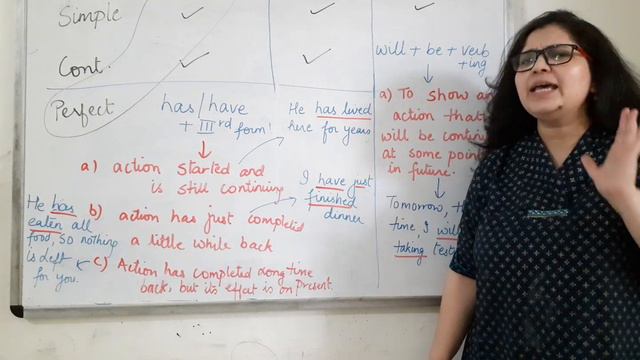 Simple ✓ ✓ ✓
Cont. ✓ ✓
Perfect
has/have
+ IIIrd form!
a) action started and
is still continuing
b) action has just completed
a little while back
c) Action has completed long time
back, but its effect is on present.
He has lived
here for years
I have just
finished
dinner
He has
eaten all
food, so nothing
is left
for you.
will + be + verb
+ing
a) To show an
action that
will be
at some
in future.
Tomorrow,
time, I will
taking